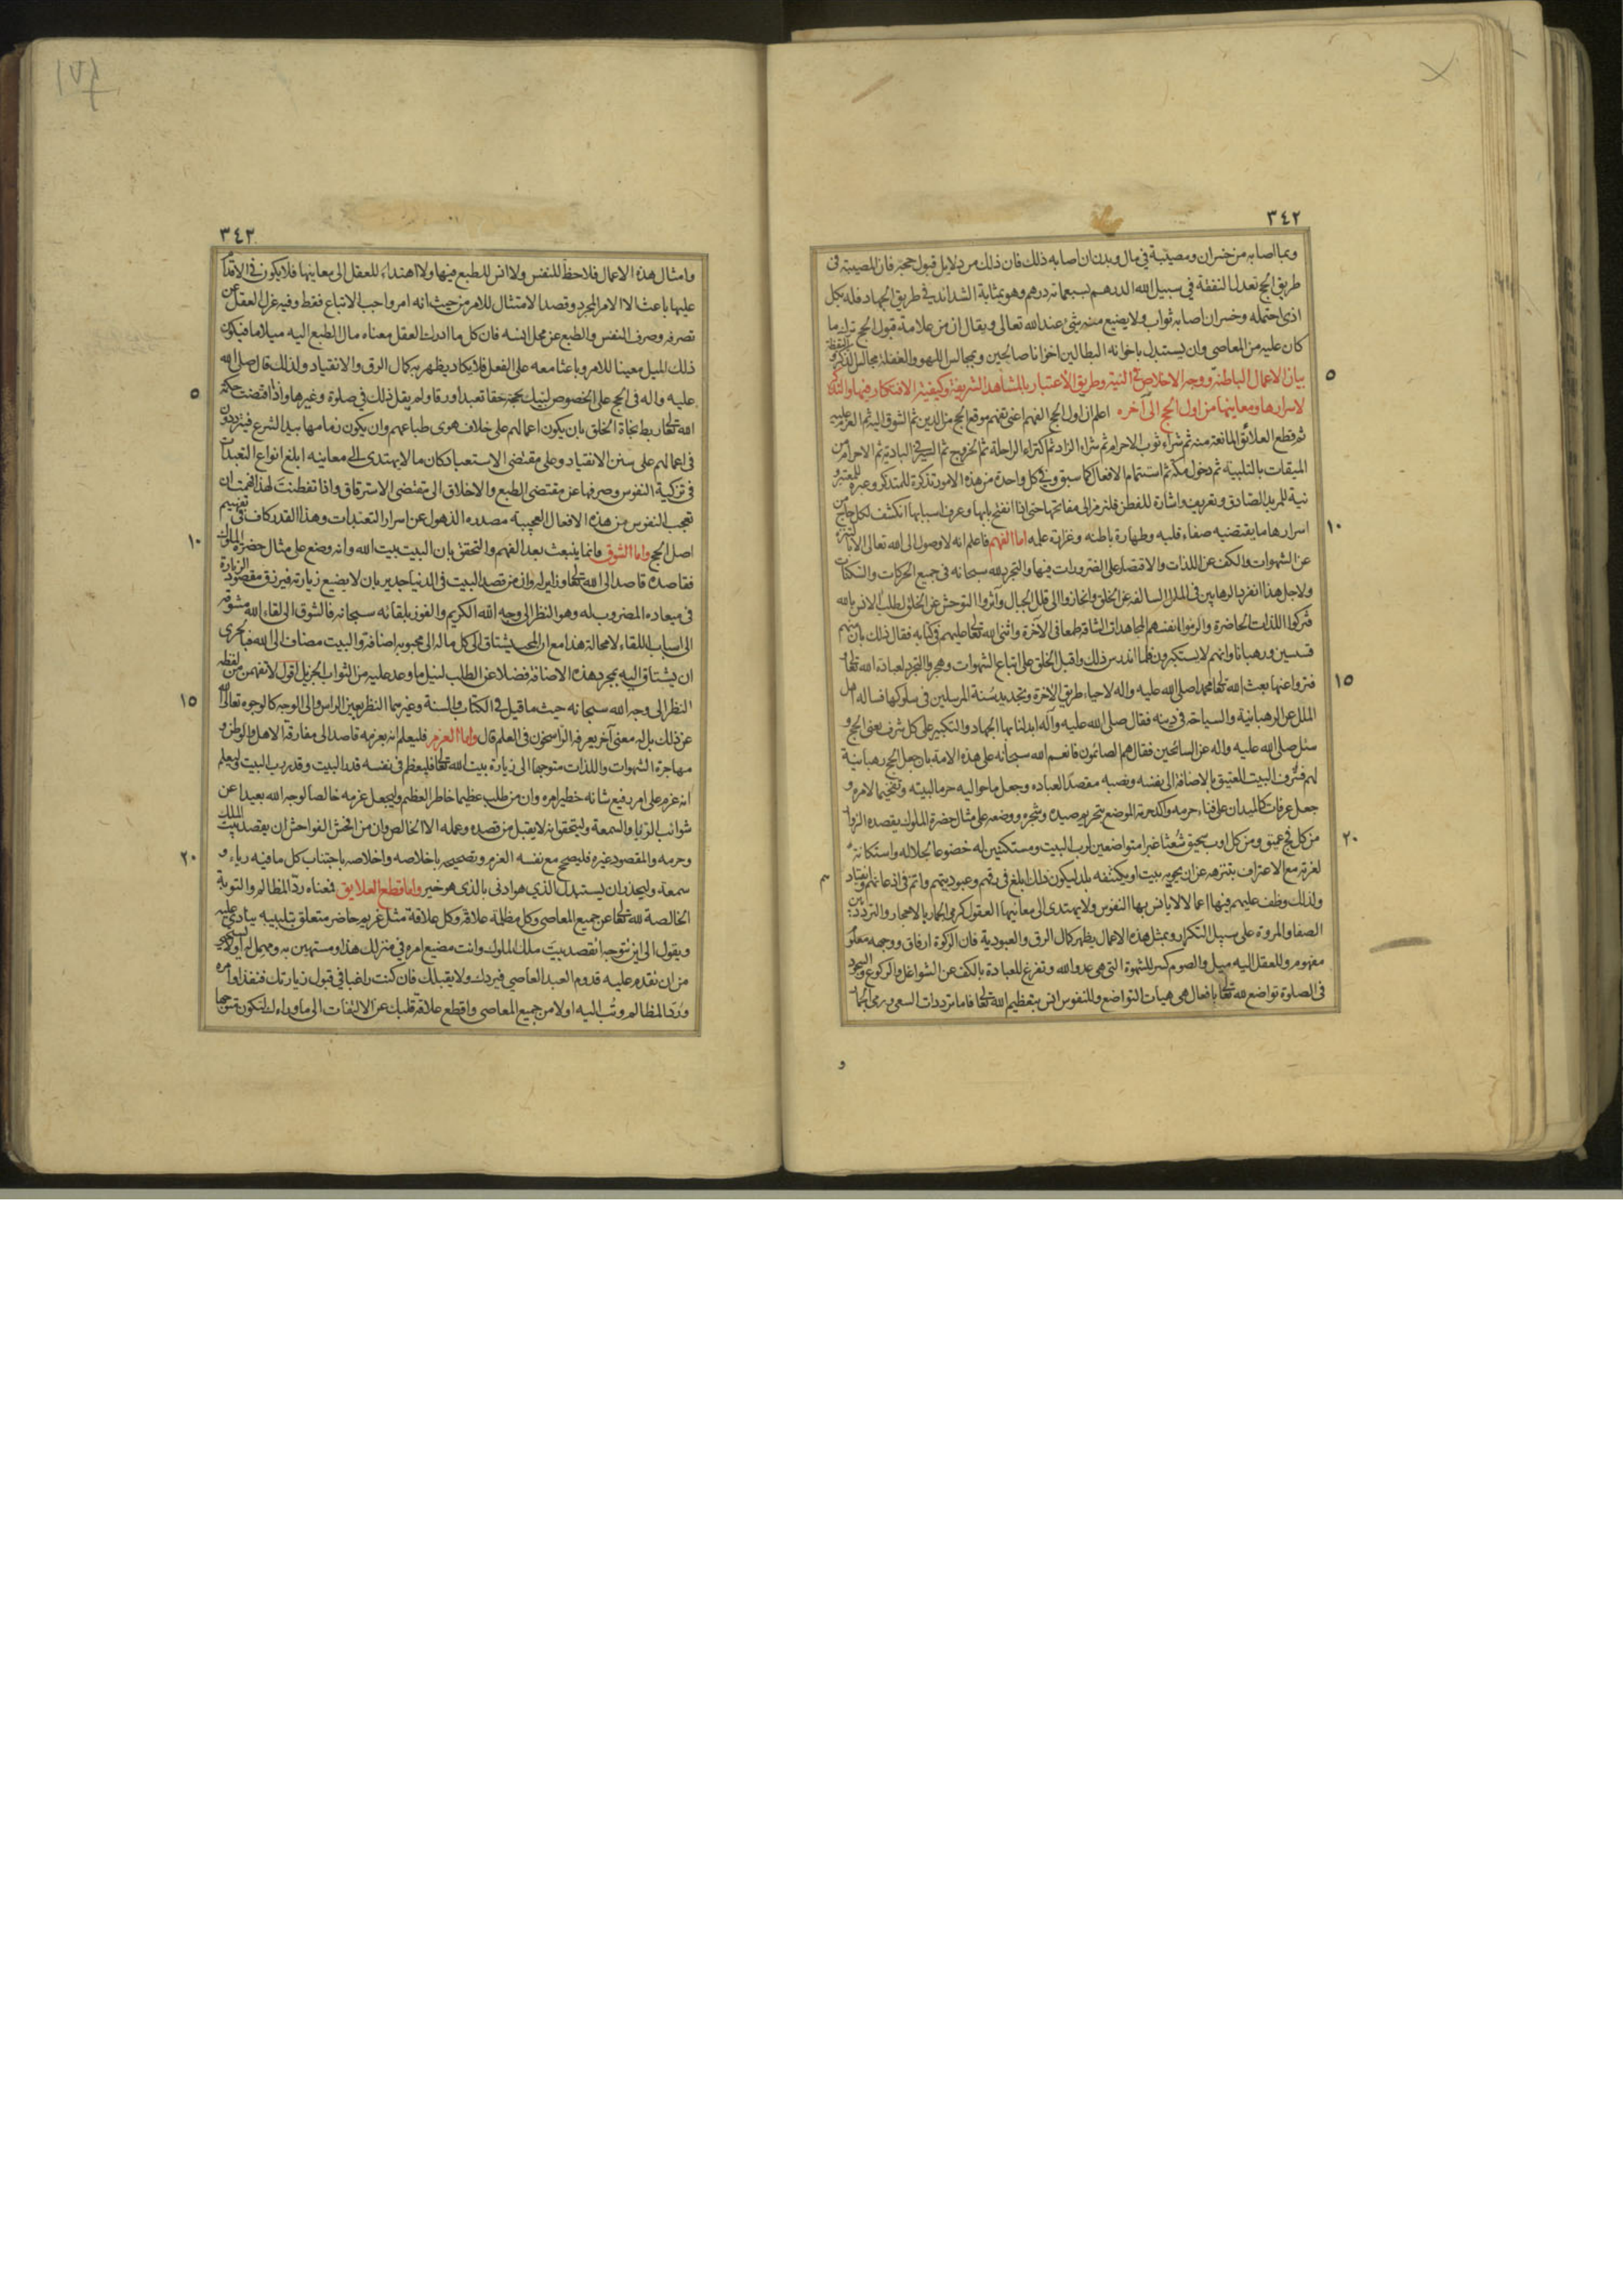 ٣٤٢
وبما اصابه من خسران ومصيبة في مال وبدن ان اصابه ذلك فان ذلك من دلايل قبول حجه فان المصيبة فى
طريق الحج تعدل النفقة في سبيل الله الدرهم بسبعمائة درهم وهو بمثابة الشدائد في طريق الجهاد فله بكل
اذى احتمله وخسران اصابه ثواب ولا يضيع منه شئ عند الله تعالى ويقال ان من علامة قبول الحج ترك ما
كان عليه من المعاصى وان يستبدل باخوانه البطالين اخوانا صالحين وبمجالس اللهو والغفلة مجالس الذكر و اليقظة
بيان الاعمال الباطنة ووجه الاخلاص في النية وطريق الاعتبار بالمشاهد الشريفة وكيفية الافتكار فيها والتذكر
لاسرارها ومعاينها من اول الحج الى آخره اعلم ان اول الحج الفهم اعنى تفهم موقع الحج من الدين ثم الشوق اليه ثم العزم عليه
ثم قطع العلائق المانعة منه ثم شراء ثوب الاحرام ثم شراء الزاد ثم اكتراء الراحلة ثم الخروج ثم السير في البادية ثم الاحرام من
الميقات بالتلبية ثم دخول مكة ثم استتمام الافعال كما سبق وفي كل واحدة من هذه الامور تذكرة للمتذكر وعبرة للمعتبر و
نية للمريد الصادق وتعريف واشارة للفطن فلنرمز الى مفاتحها حتى اذا انفتح بابها وعرف اسبابها انكشف لكل حاج من
اسرارها ما يقتضيه صفاء قلبه وطهارة باطنه وغزارة علمه اما الفهم فاعلم انه لا وصول الى الله تعالى الا بالتنزه
عن الشهوات والكف عن اللذات والاقتصار على الضرورات فيها والتجرد لله سبحانه فى جميع الحركات والسكنات
ولاجل هذا انفرد الرهابين فى الملل السالفة عن الخلق وانحازوا الى قلل الجبال وآثروا التوحش عن الخلق لطلب الانس بالله
فتركوا اللذات الحاضرة والزموا انفسهم المجاهدات الشاقة طمعا فى الآخرة واثنى الله تعالى عليهم فى كتابه فقال ذلك بان منهم
قسسين ورهبانا وانهم لا يستكبرون فلما اندرس ذلك واقبل الخلق على اتباع الشهوات وهجروا التجرد لعبادة الله تعالى
فتروا عنها بعث الله تعالى محمدا صلى الله عليه واله لاحياء طريق الاخرة وتجديد سنة المرسلين فى سلوكها فساله اهل
الملل عن الرهبانية والسياحة فى دينه فقال صلى الله عليه وآله ابدلنا بها الجهاد والتكبير على كل شرف يعنى الحج و
سئل صلى الله عليه واله عن السائحين فقال هم الصائمون فانعم الله سبحانه على هذه الامة بان جعل الحج رهبانية
لهم فشرف البيت العتيق بالاضافة الى نفسه ونصبه مقصدا لعباده وجعل ما حواليه حرما لبيته وتفخيما لامره و
جعل عرفات كالميدان على فناء حرمه واكد حرمة الموضع بتحريم صيده وشجره ووضعه على مثال حضرة الملوك يقصده الزوار
من كل فج عميق ومن كل اوب سحيق شعثا غبرا متواضعين لرب البيت ومستكنين له خضوعا لجلاله واستكانة
لعزته مع الاعتراف بتنزهه عن ان يحويه بيت او يكتنفه بلد ليكون ذلك ابلغ فى رقهم وعبوديتهم واتم فى اذعانهم وانقيادهم
ولذلك وظف عليهم فيها اعمالا لا يانس بها النفوس ولا يهتدى الى معانيها العقول كرمى الجمار بالاحجار والتردد بين
الصفا والمروة على سبيل التكرار وبمثل هذه الاعمال يظهر كمال الرق والعبودية فان الزكوة ارفاق ووجهه معلوم
مفهوم وللعقل اليه ميل والصوم كسر للشهوة التى هى عدو الله وتفرغ للعبادة بالكف عن الشواغل والركوع والسجود
فى الصلوة تواضع لله تعالى بافعال هى هيات التواضع وللنفوس انس بتعظيم الله تعالى فاما ترددات السعى ورمى الجمار
و
٣٤٣
وامثال هذه الاعمال فلا حظ للنفس ولا انس للطبع فيها ولا اهتداء للعقل الى معاينها فلا يكون في الاقدام
عليها باعث الا الامر المجرد وقصد الامتثال للامر من حيث انه امر واجب الاتباع فقط وفيه عزل العقل عن
تصرفه وصرف النفس والطبع عن محل انسه فان كل ما ادرك العقل معناه مال الطبع اليه ميلا ما فيكون
ذلك الميل معينا للامر وباعثا معه على الفعل فلا يكاد يظهر به كمال الرق والانقياد ولذلك قال صلى الله
عليه واله فى الحج على الخصوص لبيك بحجة حقا تعبدا ورقا ولم يقل ذلك في صلوة وغيرها واذا اقتضت حكمة
الله تعالى ربط نجاة الخلق بان يكون اعمالهم على خلاف هوى طباعهم وان يكون زمامها بيد الشرع فيترددون
فى اعمالهم على سنن الانقياد وعلى مقتضى الاستعباد كان ما لا يهتدى الى معاينه ابلغ انواع التعبدات
فى تزكية النفوس وصرفها عن مقتضى الطبع والاخلاق الى مقتضى الاسترقاق واذا تفطنت لهذا فهمت ان
تعجب النفوس من هذه الافعال العجيبة مصدره الذهول عن اسرار التعبدات وهذا القدر كاف فى تفهيم
اصل الحج واما الشوق فانما ينبعث بعد الفهم والتحقق بان البيت بيت الله وانه وضع على مثال حضرة الملوك
فقاصده قاصد الى الله تعالى وزاير له وان من قصد البيت فى الدنيا جدير بان لا يضيع زيارته فيرزق مقصود الزيارة
فى ميعاده المضروب له وهو النظر الى وجه الله الكريم والفوز بلقائه سبحانه فالشوق الى لقاء الله مشوقه
الى اسباب اللقاء لا محالة هذا مع ان المحب يشتاق الى كل ماله الى محبوبه اضافة والبيت مضاف الى الله فبالحرى
ان يشتاق اليه بمجرد هذه الاضافة فضلا عن الطلب لنيل ما وعد عليه من الثواب الجزيل اقول لا تفهمن من لفظه
النظر الى وجه الله سبحانه حيث ما قيل فى الكتاب والسنة وغيرهما النظر بعين الراس والى الوجه كالوجوه تعالى الله
عن ذلك بل له معنى آخر يعرفه الراسخون فى العلم قال واما العزم فليعلم انه بعزمه قاصد الى مفارقة الاهل والوطن و
مهاجرة الشهوات واللذات متوجها الى زيارة بيت الله تعالى فليعظم فى نفسه قدر البيت وقدر رب البيت وليعلم
انه عزم على امر رفيع شانه خطير امره وان من طلب عظيما خاطر العظيم وليجعل عزمه خالصا لوجه الله بعيدا عن
شوائب الريا والسمعة وليتحقق انه لا يقبل من قصده وعمله الا الخالص وان من افحش الفواحش ان يقصد بيت الملك
وحرمه والمقصود غيره فليصحح مع نفسه العزم وتصحيحه باخلاصه واخلاصه باجتناب كل ما فيه رياء و
سمعة وليحذر ان يستبدل الذي هو ادنى بالذى هو خير واما قطع العلايق فمعناه رد المظالم والتوبة
الخالصة لله تعالى عن جميع المعاصى وكل مظلمة علاقة وكل علاقة مثل غريم حاضر متعلق بتلبيبه ينادى عليه
ويقول الى اين تتوجه اتقصد بيت ملك الملوك وانت مضيع امره في منزلك هذا ومستهين به ومهمل له اولا تستحيى
من ان تقدم عليه قدوم العبد العاصي فيردك ولا يقبلك فان كنت راغبا في قبول زيارتك فنفذ اوامره
ورد المظالم وتب اليه اولا من جميع المعاصى واقطع علاقة قلبك عن الالتفات الى ما وراءك لتكون متوجها